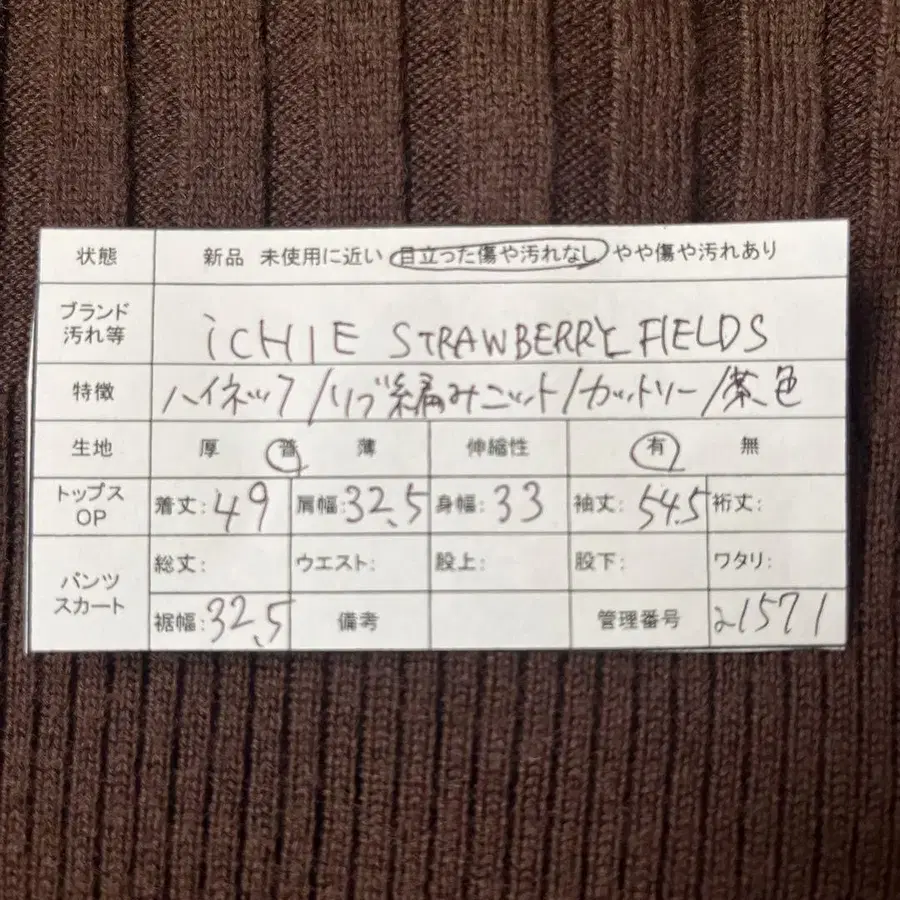 状態 新品 未使用に近い 目立った傷や汚れなし やや傷や汚れあり
ブランド
汚れ等
iCHIE STRAWBERRY FIELDS
特徴 ハイネック/リブ編みニット/カットソー/茶色
生地 厚 普 薄 伸縮性 有 無
トップス
OP
着丈:49 肩幅:32.5 身幅:33 袖丈:54.5 裄丈:
パンツ
スカート
総丈: ウエスト: 股上: 股下: ワタリ:
裾幅:32.5 備考 管理番号 21571